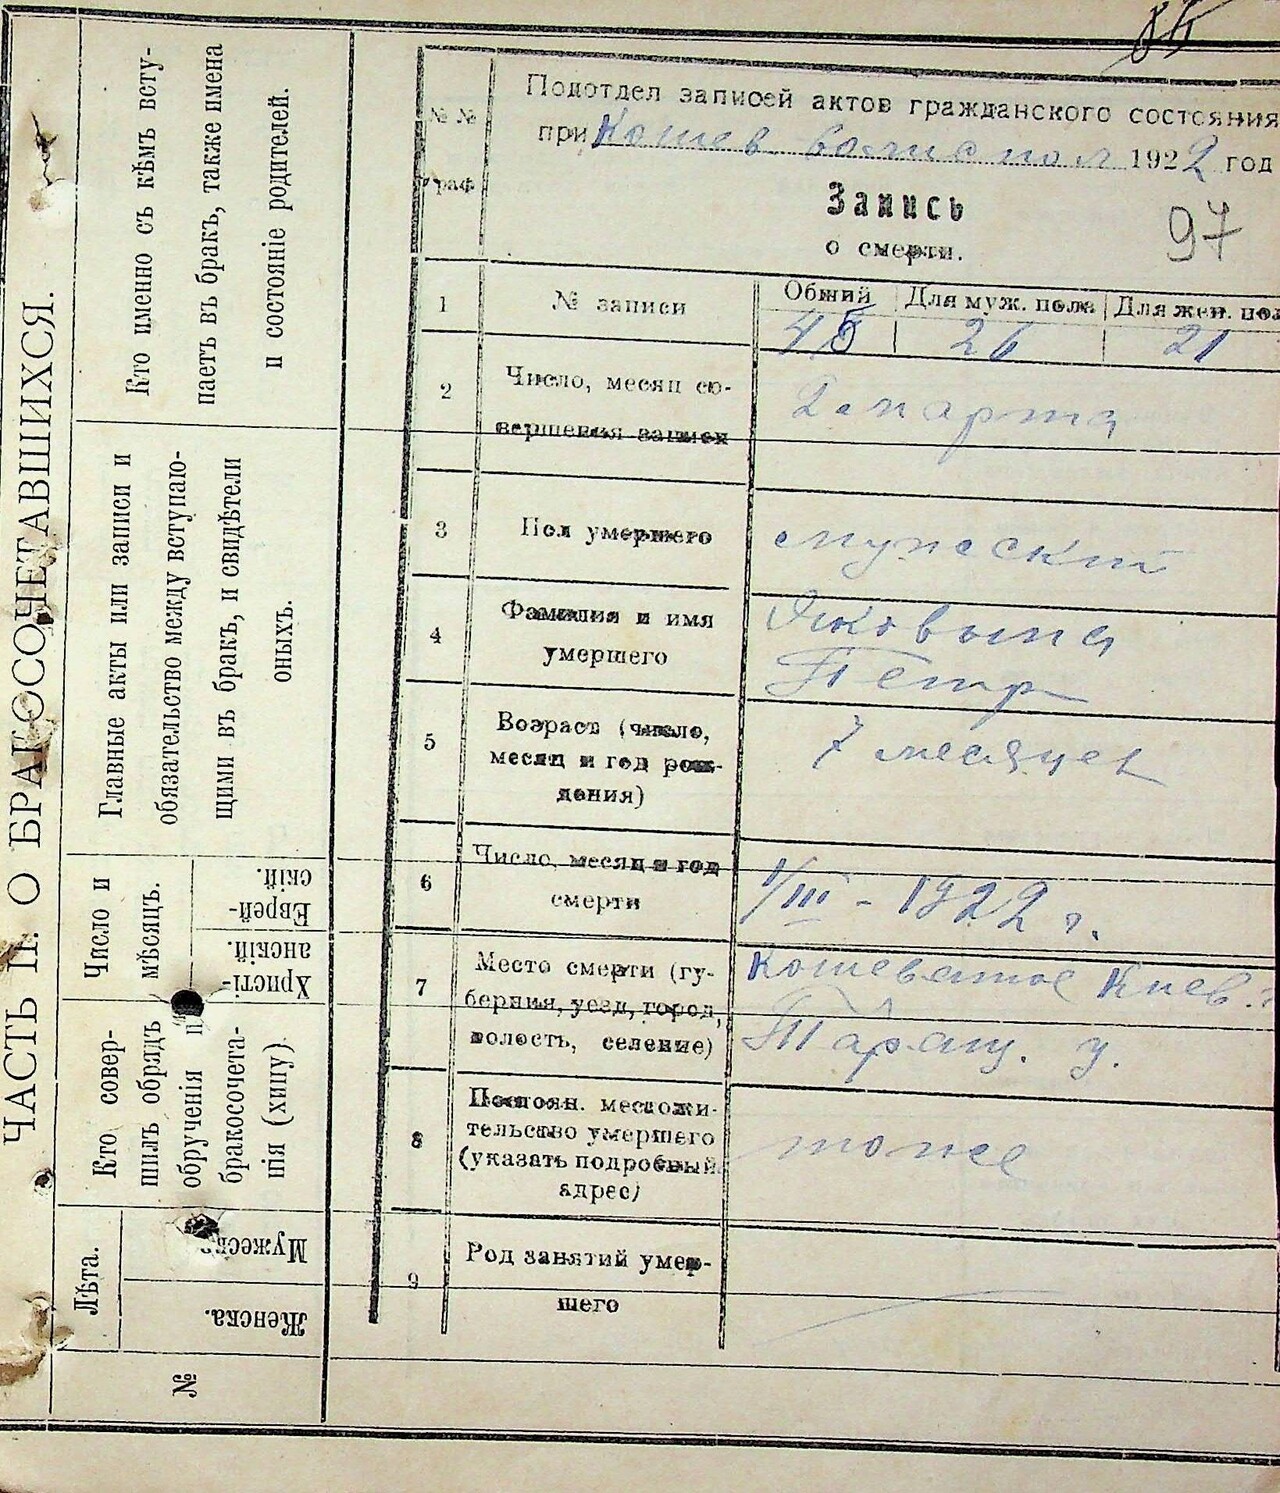 ЧАСТЬ II. О БРАКОСОЧЕТАВШИХСЯ.
Кто именно съ кѣмъ всту-
паетъ въ бракъ, также имена
и состояніе родителей.
Главные акты или записи и
обязательство между вступаю-
щими въ бракъ, и свидѣтели
оныхъ.
Число и
мѣсяцъ.
Еврей-
скій.
Христі-
анскій.
Кто совер-
шилъ обрядъ
обрученія и
бракосочета-
нія (хипу).
Лѣта.
Мужеска.
Женска.
№
Подотдел записей актов гражданского состояния
при Кошев. волисполк 1922 год
Запись
о смерти.
97
№№
граф
1 № записи
Общий Для муж. пола Для жен. пол
26 21
2 Число, месяц со-
вершения записи
2 марта
3 Пол умершего
мужеский
4 Фамилия и имя
умершего
Петр
5 Возраст (число,
месяц и год рож-
дения)
7 месяцев
6 Число, месяц и год
смерти
1/III - 1922 г.
7 Место смерти (гу-
берния, уезд, город,
волость, селение)
Кошеватое Киев. г.
Таращ. у.
8 Постоян. местожи-
тельство умершего
(указать подробный
адрес)
тоже
9 Род занятий умер-
шего